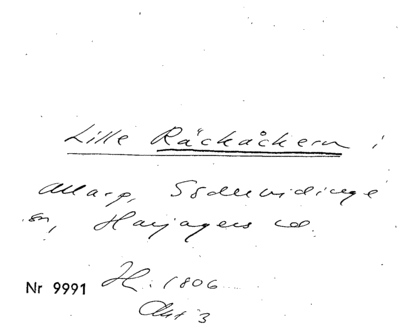 Lille Räckåkern i
Allarp, Södervidinge
sn, Harjagers hd.
Nr 9991 H. 1806
Akt 3